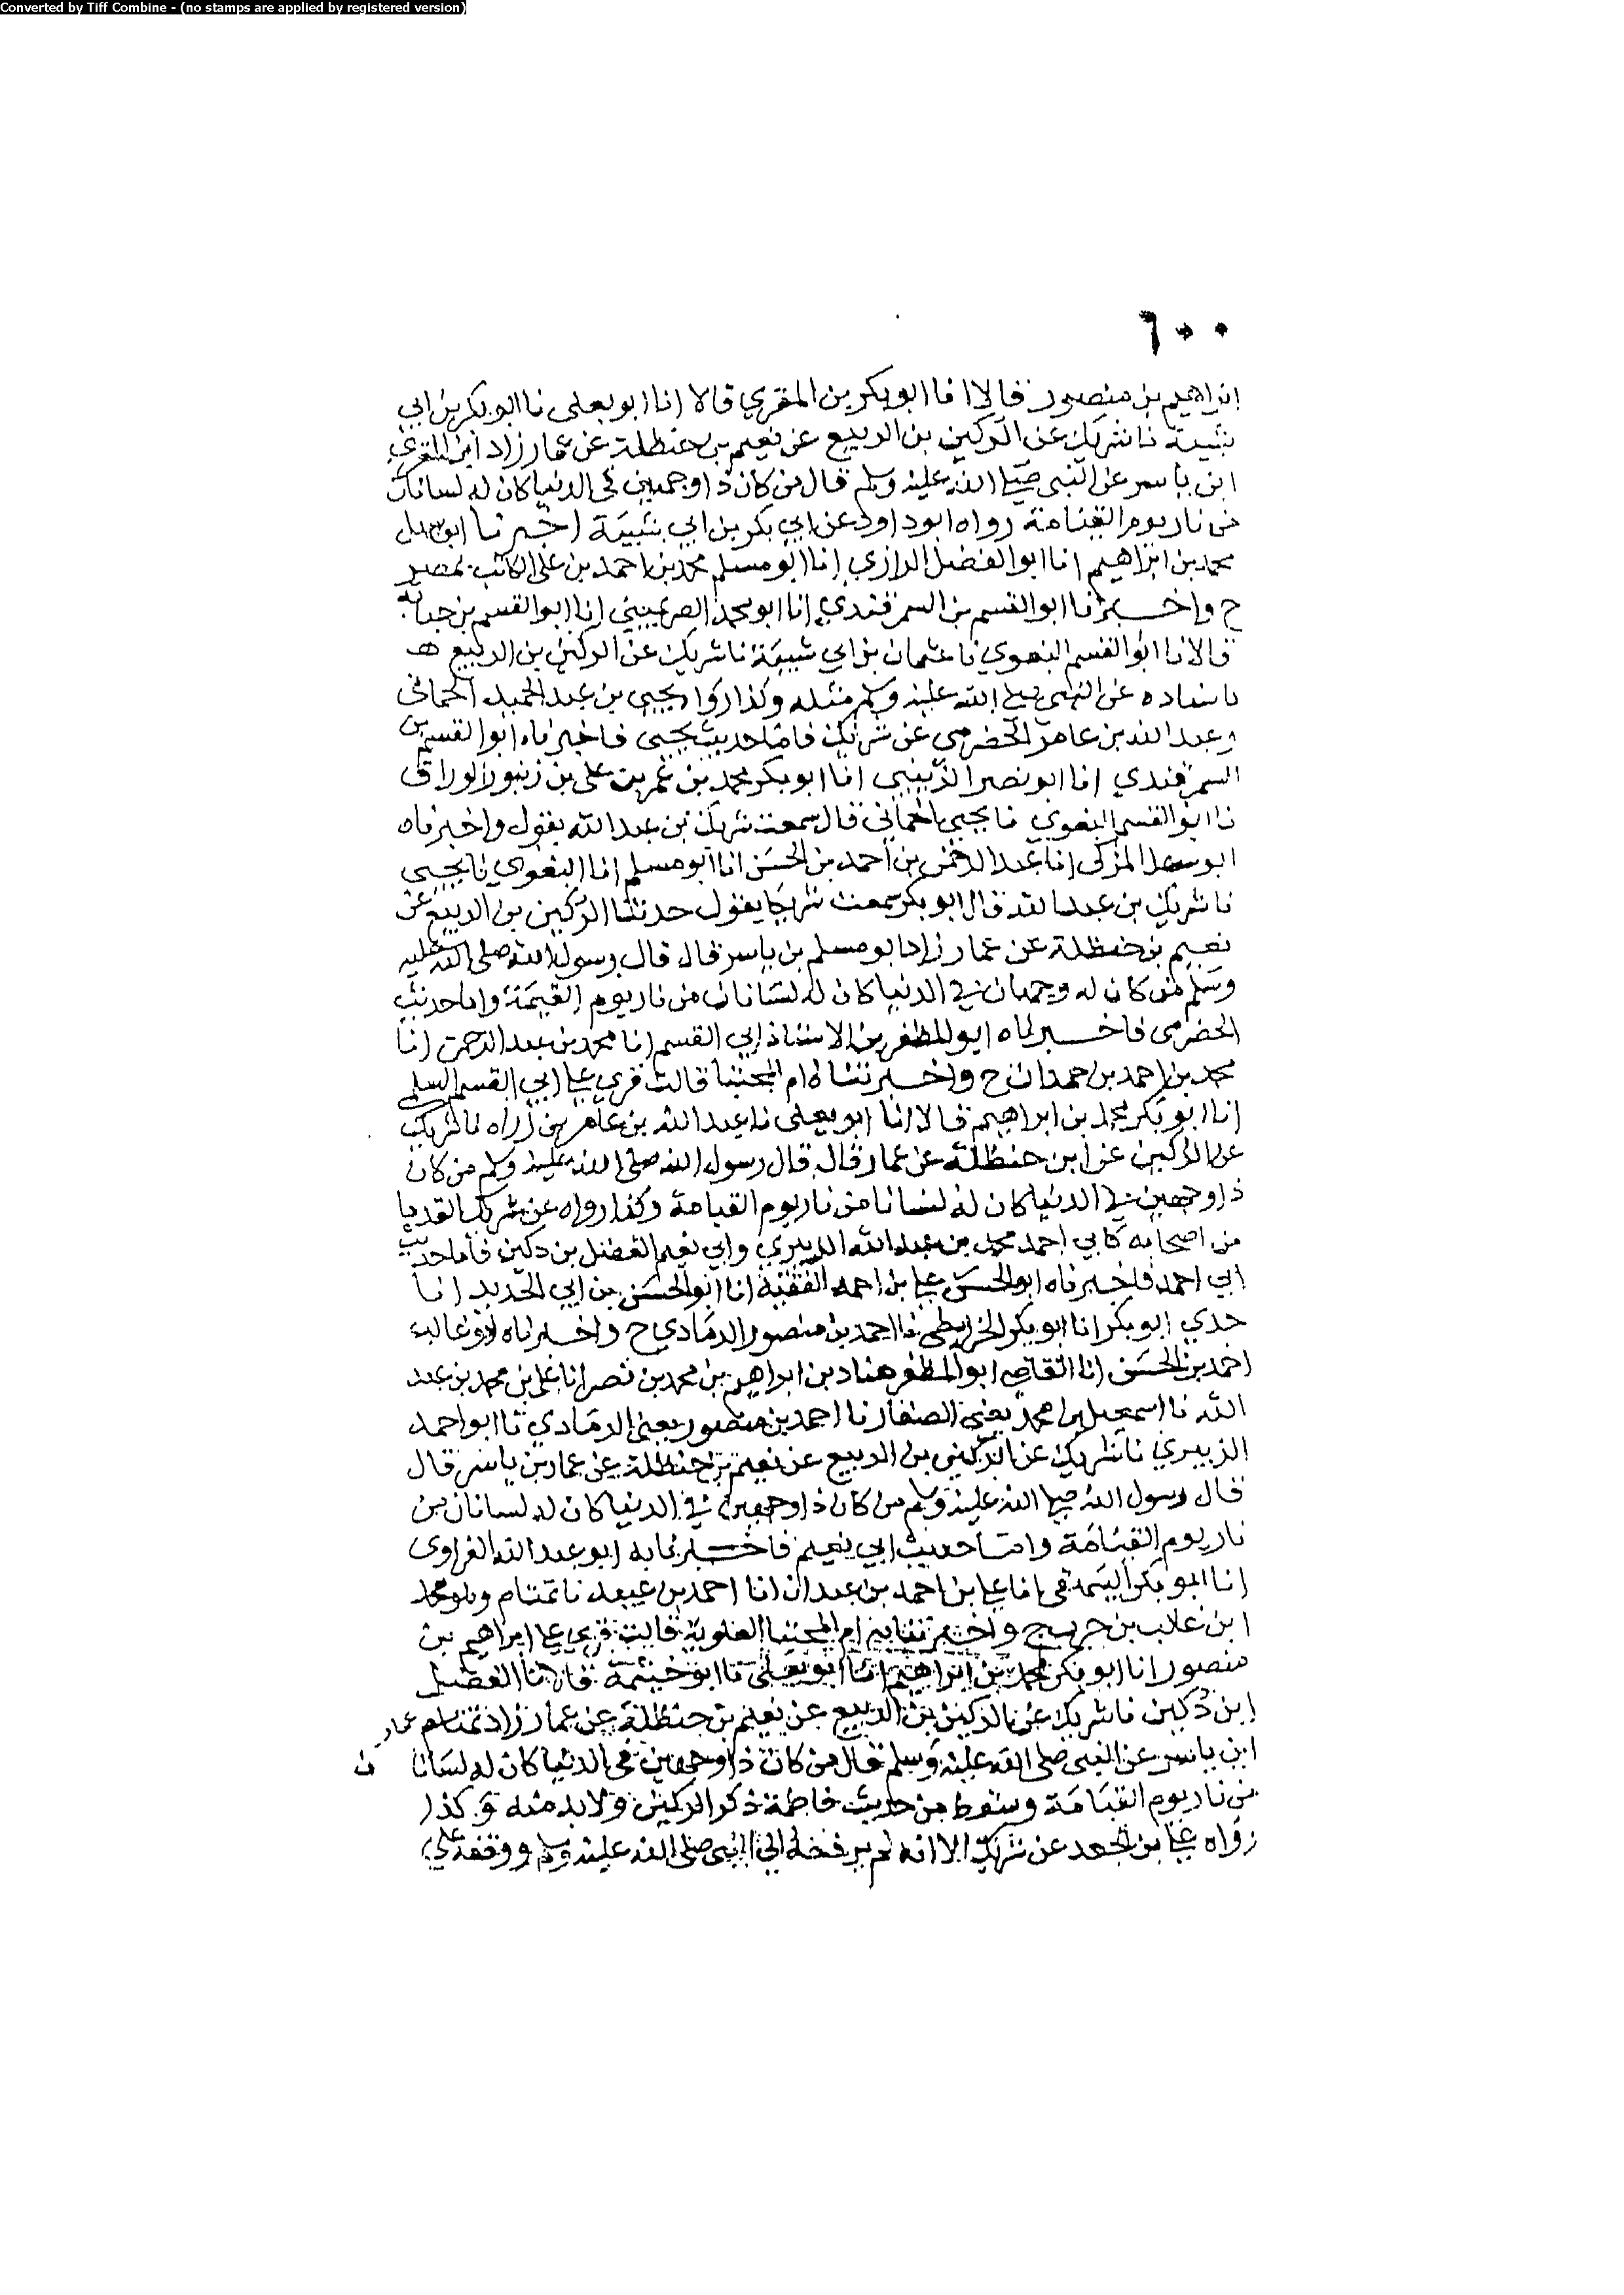 Converted by Tiff Combine - (no stamps are applied by registered version)
٦٠٠
ابراهيم بن منصور قالا انا ابو بكر بن المقري قالا انا ابو يعلى نا ابو بكر بن ابي
شيبة نا شريك عن الركين بن الربيع عن نعيم بن حنظلة عن عمار زاد ابن المقري
ابن ياسر عن النبي صلى الله عليه وسلم قال من كان ذا وجهين في الدنيا كان له لسانان
من نار يوم القيامة رواه ابو داود عن ابي بكر بن ابي شيبة اخبرنا ابو سهل
محمد بن ابراهيم انا ابو الفضل الرازي انا ابو مسلم محمد بن احمد بن علي الكاتب بمصر
ح واخبرنا ابو القسم بن السمرقندي انا ابو محمد الصريفيني انا ابو القسم بن حبابة
قالا نا ابو القسم البغوي نا عثمان بن ابي شيبة نا شريك عن الركين بن الربيع
باسناده عن النبي صلى الله عليه وسلم مثله وكذا رواه يحيى بن عبد الحميد الحماني
وعبد الله بن عامر الحضرمي عن شريك فاما حديث يحيى فاخبرناه ابو القسم بن
السمرقندي انا ابو نصر الزينبي انا ابو بكر محمد بن عمر بن علي بن زنبور الوراق
نا ابو القسم البغوي نا يحيى الحماني قال سمعت شريك بن عبد الله يقول واخبرناه
ابو سعد المزكي انا عبد الرحمن بن احمد بن الحسن انا ابو مسلم انا البغوي نا يحيى
نا شريك بن عبد الله قال ابو بكر سمعت شريكا يقول حدثنا الركين بن الربيع عن
نعيم بن حنظلة عن عمار زاد ابو مسلم بن ياسر قال قال رسول الله صلى الله عليه
وسلم من كان له وجهان في الدنيا كان له لسانان من نار يوم القيمة واما حديث
الحضرمي فاخبرناه ابو المظفر بن الاستاذ ابي القسم انا محمد بن عبد الرحمن انا
محمد بن احمد بن حمدان ح واخبرتناه ام المجتبا قالت قري على ابي القسم السلمي
انا ابو بكر محمد بن ابراهيم قالا انا ابو يعلى نا عبد الله بن عامر بن زراه نا شريك
عن الركين عن ابن حنظلة عن عمار قال قال رسول الله صلى الله عليه وسلم من كان
ذا وجهين في الدنيا كان له لسانا من نار يوم القيامة وكذا رواه عن شريك القدما
من اصحابه كابي احمد محمد بن عبد الله الزبيري وابي نعيم الفضل بن دكين فاما حديث
ابي احمد فاخبرناه ابو الحسن علي بن احمد الفقيه انا ابو الحسن بن ابي الحديد انا
جدي ابو بكر انا ابو بكر الخرايطي نا احمد بن منصور الرمادي ح واخبرناه ابو غالب
احمد بن الحسن انا القاضي ابو المظفر هناد بن ابراهيم بن محمد بن نصر انا علي بن محمد بن عبد
الله نا اسمعيل بن محمد يعني الصفار نا احمد بن منصور يعني الرمادي نا ابو احمد
الزبيري نا شريك عن الركين بن الربيع عن نعيم بن حنظلة عن عمار بن ياسر قال
قال رسول الله صلى الله عليه وسلم من كان ذا وجهين في الدنيا كان له لسانان من
نار يوم القيامة واما حديث ابي نعيم فاخبرنا به ابو عبد الله الفراوي
انا ابو بكر البيهقي انا علي بن احمد بن عبدان انا احمد بن عبيد نا تمتام وهو محمد
ابن غالب بن حرب ح واخبرتنا به ام المجتبا العلوية قالت قري على ابراهيم بن
منصور انا ابو بكر محمد بن ابراهيم انا ابو يعلى نا ابو خيثمة قالا نا الفضل
ابن دكين نا شريك عن الركين بن الربيع عن نعيم بن حنظلة عن عمار زاد تمتام عمار
ابن ياسر عن النبي صلى الله عليه وسلم قال من كان ذا وجهين في الدنيا كان له لسانا ن
من نار يوم القيامة وسقط من حديث فاطمة ذكر الركين ولا بد منه وكذا
رواه علي بن الجعد عن شريك الا انه لم يرفعه الى النبي صلى الله عليه وسلم ووقفه على